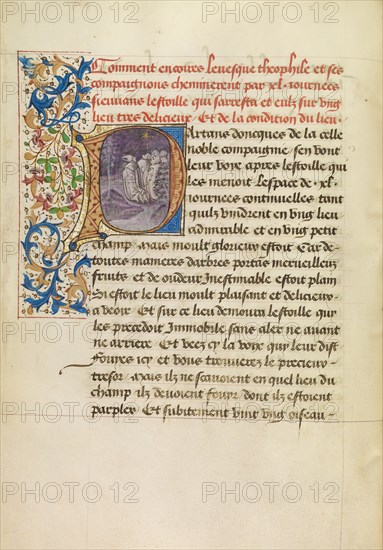 Comment encores levesque theophile et ses
compaignons cheminerent par xl. iournees
sieuuans lestoille qui sarresta et eulz sur vng
lieu tres delicieux. Et de la condition du lieu.
Partans doncques de la celle
noble compaignie sen vont
leur voye apres lestoille qui
les menoit lespace de xl.
iournees continuelles tant
quilz vindrent en vng lieu
admirable et en vng petit
champ. Mais moult glorieux estoit. Car de
toutes manieres darbres portans merveilleux
fruits et de oudeur Inestimable estoit plain
Si estoit le lieu moult plaisant et delicieux
a veoir. Et sur ce lieu demoura lestoille qui
les precedoit Immobile sans aler ne auant
ne arriere. Et veez cy la voix qui leur dist
Fouyes icy et vous trouuerez le precieux
tresor. Mais ilz ne scauoient en quel lieu du
champ ilz devoient fouyr dont ilz estoient
parplex. Et subitement vint vng oiseau
PHOTO 12